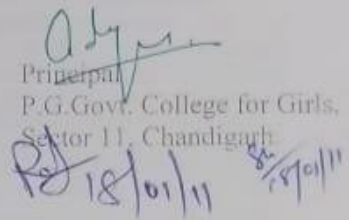 Principal
P.G.Govt. College for Girls,
Sector 11, Chandigarh
18/01/11
18/01/11